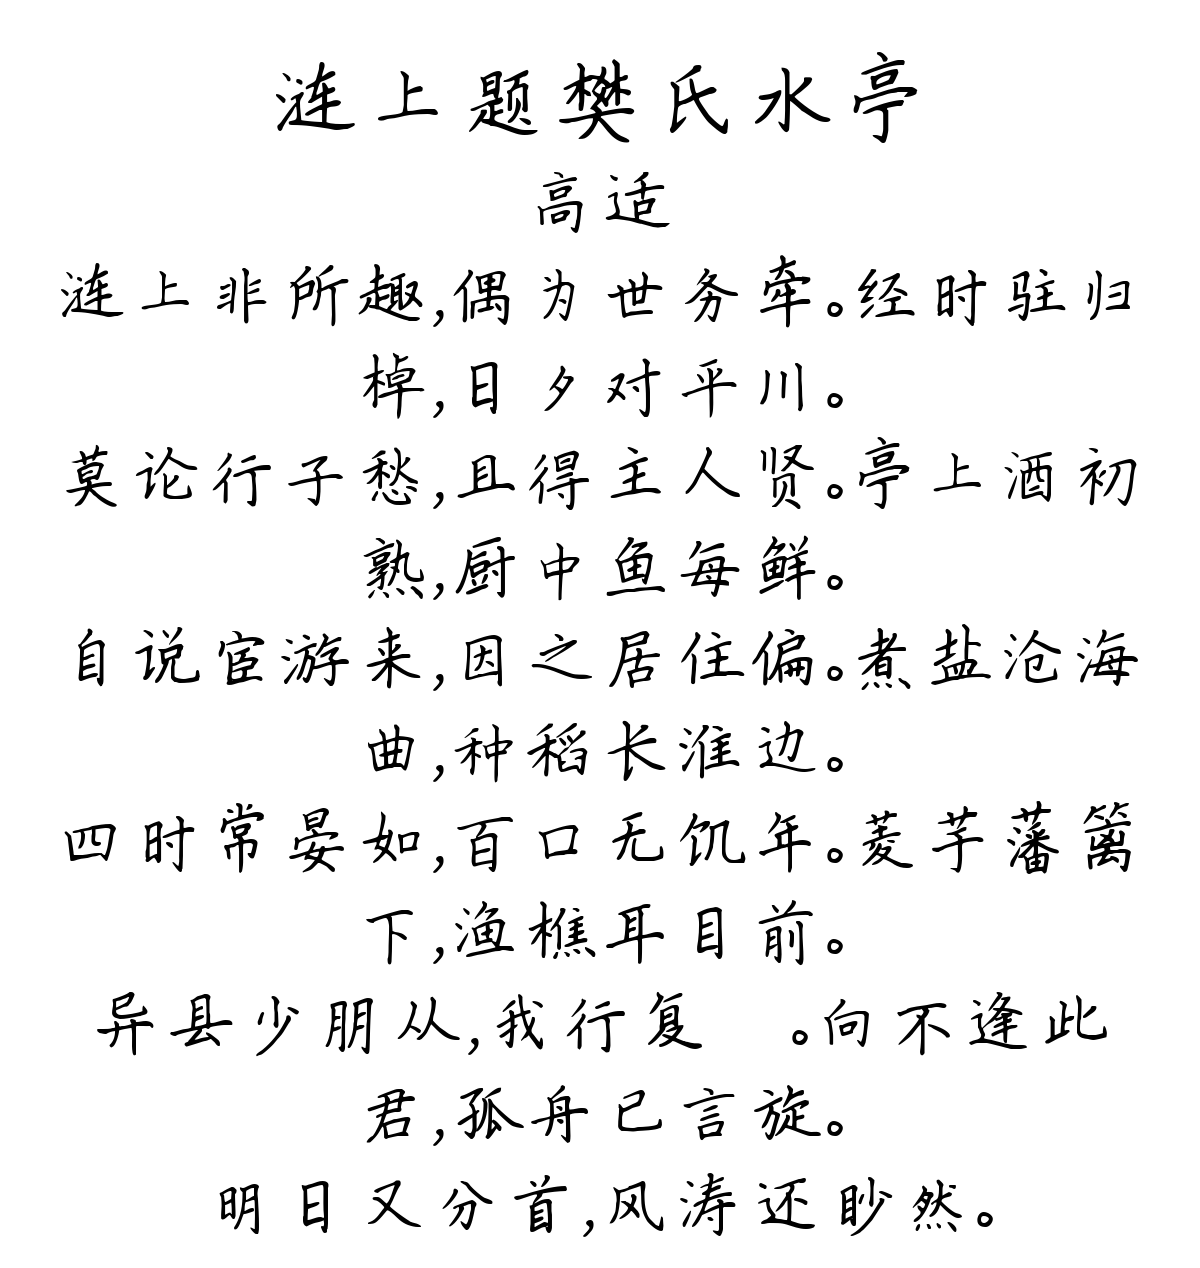 涟上题樊氏水亭
高适
涟上非所趣,偶为世务牵。经时驻归
棹,日夕对平川。
莫论行子愁,且得主人贤。亭上酒初
熟,厨中鱼每鲜。
自说宦游来,因之居住偏。煮盐沧海
曲,种稻长淮边。
四时常晏如,百口无饥年。菱芋藩篱
下,渔樵耳目前。
异县少朋从,我行复 。向不逢此
君,孤舟已言旋。
明日又分首,风涛还眇然。